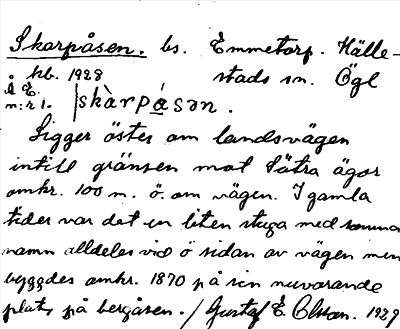 Skarpåsen. bs. Emmetorp. Hälle-
kb. 1928 stads sn. Ögl
Å E.
n:r 1. skàrpá̀sən.
Ligger öster om landsvägen
intill gränsen mot Sätra ägor
omkr. 100 m. ö. om vägen. I gamla
tider var det en liten stuga med samma
namn alldeles vid ö sidan av vägen men
byggdes omkr. 1870 på sin nuvarande
plats på bergåsen. / Gustaf E. Olsson. 1929